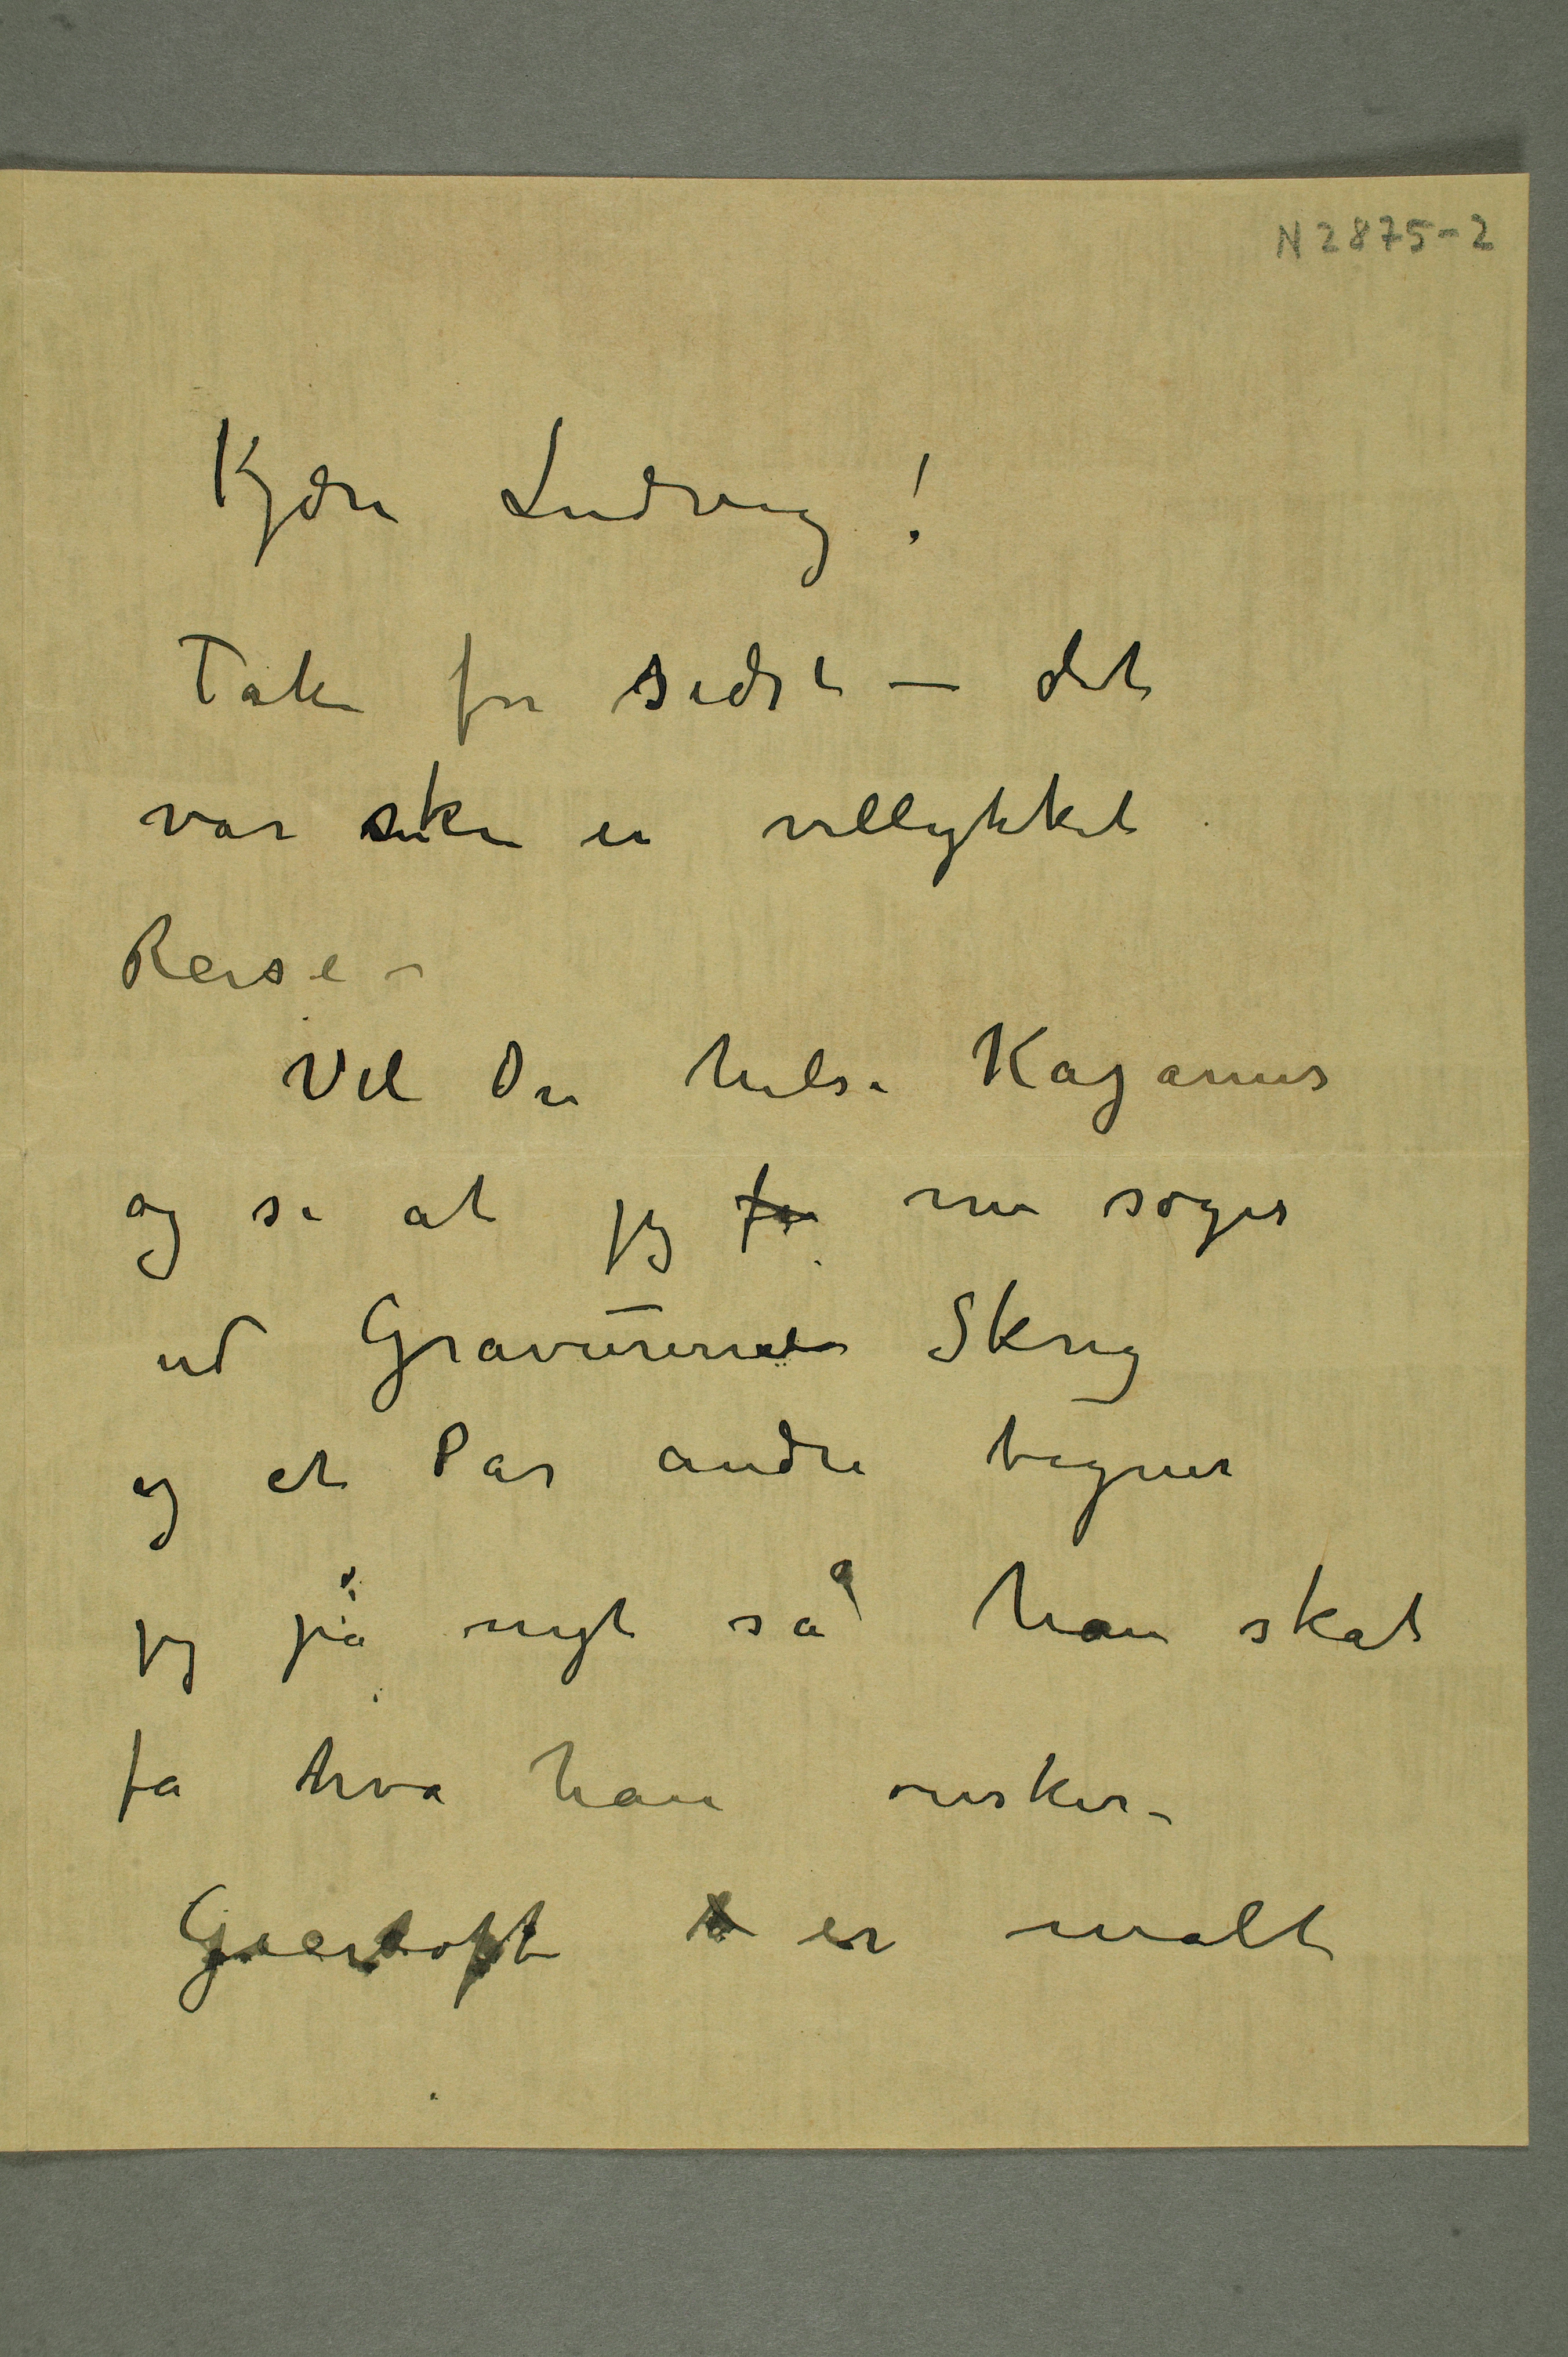 N 2875-2
Kjære Ludvig!
Tak for sidst — det
var en vellykket
Reise –
Vil Du hilse Kaganus
og si at jeg fo nu søger
ud Gravurerne Skrig
og et Par andre tegner
jeg på nyt så han skal
få hva han ønsker –
er malt